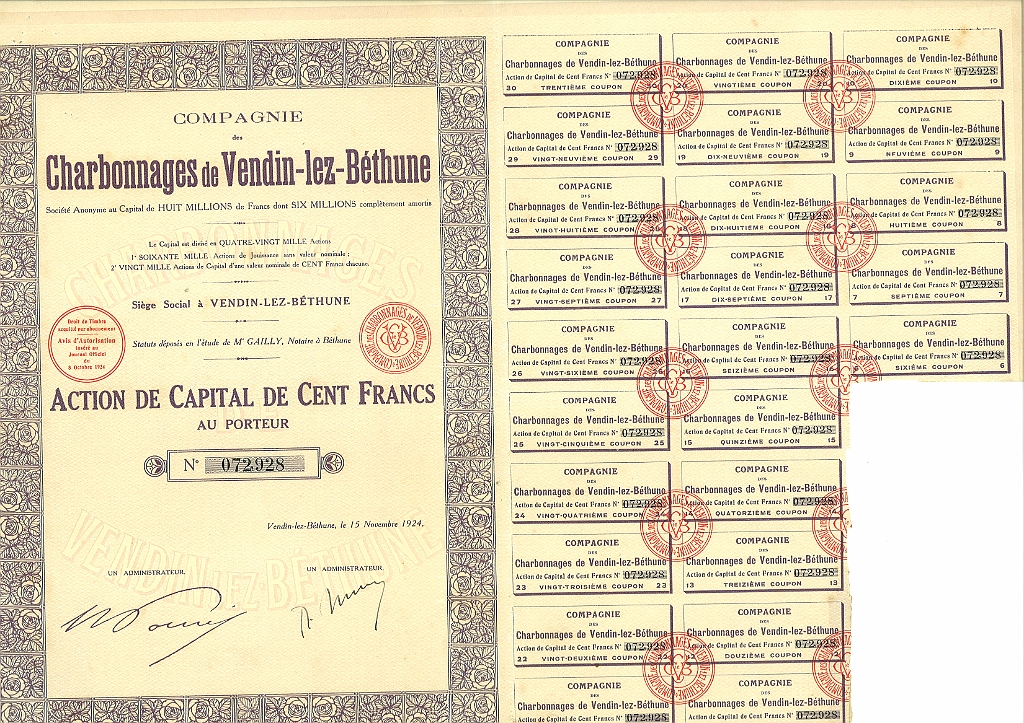 COMPAGNIE
des
Charbonnages de Vendin-lez-Béthune
Société Anonyme au Capital de HUIT MILLIONS de Francs dont SIX MILLIONS complètement amortis
Le Capital est divisé en QUATRE-VINGT MILLE Actions
1° SOIXANTE MILLE Actions de Jouissance sans valeur nominale ;
2° VINGT MILLE Actions de Capital d'une valeur nominale de CENT Francs chacune.
Siège Social à VENDIN-LEZ-BÉTHUNE
Statuts déposés en l'étude de Mᵉ GAILLY, Notaire à Béthune
Droit de Timbre
acquitté par abonnement
Avis d'Autorisation
inséré au
Journal Officiel
du
8 Octobre 1924
COMPAGNIE DES CHARBONNAGES DE VENDIN-LEZ-BÉTHUNE
CVB
ACTION DE CAPITAL DE CENT FRANCS
AU PORTEUR
N° 072.928
Vendin-lez-Béthune, le 15 Novembre 1924.
UN ADMINISTRATEUR,
UN ADMINISTRATEUR,
CHARBONNAGES
DE
VENDIN-LEZ-BÉTHUNE
COMPAGNIE
DES
Charbonnages de Vendin-lez-Béthune
Action de Capital de Cent Francs N° 072.928
30 TRENTIÈME COUPON 30
COMPAGNIE
DES
Charbonnages de Vendin-lez-Béthune
Action de Capital de Cent Francs N° 072.928
20 VINGTIÈME COUPON 20
COMPAGNIE
DES
Charbonnages de Vendin-lez-Béthune
Action de Capital de Cent Francs N° 072.928
10 DIXIÈME COUPON 10
COMPAGNIE
DES
Charbonnages de Vendin-lez-Béthune
Action de Capital de Cent Francs N° 072.928
29 VINGT-NEUVIÈME COUPON 29
COMPAGNIE
DES
Charbonnages de Vendin-lez-Béthune
Action de Capital de Cent Francs N° 072.928
19 DIX-NEUVIÈME COUPON 19
COMPAGNIE
DES
Charbonnages de Vendin-lez-Béthune
Action de Capital de Cent Francs N° 072.928
9 NEUVIÈME COUPON 9
COMPAGNIE
DES
Charbonnages de Vendin-lez-Béthune
Action de Capital de Cent Francs N° 072.928
28 VINGT-HUITIÈME COUPON 28
COMPAGNIE
DES
Charbonnages de Vendin-lez-Béthune
Action de Capital de Cent Francs N° 072.928
18 DIX-HUITIÈME COUPON 18
COMPAGNIE
DES
Charbonnages de Vendin-lez-Béthune
Action de Capital de Cent Francs N° 072.928
8 HUITIÈME COUPON 8
COMPAGNIE
DES
Charbonnages de Vendin-lez-Béthune
Action de Capital de Cent Francs N° 072.928
27 VINGT-SEPTIÈME COUPON 27
COMPAGNIE
DES
Charbonnages de Vendin-lez-Béthune
Action de Capital de Cent Francs N° 072.928
17 DIX-SEPTIÈME COUPON 17
COMPAGNIE
DES
Charbonnages de Vendin-lez-Béthune
Action de Capital de Cent Francs N° 072.928
7 SEPTIÈME COUPON 7
COMPAGNIE
DES
Charbonnages de Vendin-lez-Béthune
Action de Capital de Cent Francs N° 072.928
26 VINGT-SIXIÈME COUPON 26
COMPAGNIE
DES
Charbonnages de Vendin-lez-Béthune
Action de Capital de Cent Francs N° 072.928
16 SEIZIÈME COUPON 16
COMPAGNIE
DES
Charbonnages de Vendin-lez-Béthune
Action de Capital de Cent Francs N° 072.928
6 SIXIÈME COUPON 6
COMPAGNIE
DES
Charbonnages de Vendin-lez-Béthune
Action de Capital de Cent Francs N° 072.928
25 VINGT-CINQUIÈME COUPON 25
COMPAGNIE
DES
Charbonnages de Vendin-lez-Béthune
Action de Capital de Cent Francs N° 072.928
15 QUINZIÈME COUPON 15
COMPAGNIE
DES
Charbonnages de Vendin-lez-Béthune
Action de Capital de Cent Francs N° 072.928
24 VINGT-QUATRIÈME COUPON 24
COMPAGNIE
DES
Charbonnages de Vendin-lez-Béthune
Action de Capital de Cent Francs N° 072.928
14 QUATORZIÈME COUPON 14
COMPAGNIE
DES
Charbonnages de Vendin-lez-Béthune
Action de Capital de Cent Francs N° 072.928
23 VINGT-TROISIÈME COUPON 23
COMPAGNIE
DES
Charbonnages de Vendin-lez-Béthune
Action de Capital de Cent Francs N° 072.928
13 TREIZIÈME COUPON 13
COMPAGNIE
DES
Charbonnages de Vendin-lez-Béthune
Action de Capital de Cent Francs N° 072.928
22 VINGT-DEUXIÈME COUPON 22
COMPAGNIE
DES
Charbonnages de Vendin-lez-Béthune
Action de Capital de Cent Francs N° 072.928
12 DOUZIÈME COUPON 12
COMPAGNIE
DES
Charbonnages de Vendin-lez-Béthune
Action de Capital de Cent Francs N° 072.928
COMPAGNIE
DES
Charbonnages de Vendin-lez-Béthune
Action de Capital de Cent Francs N° 072.928